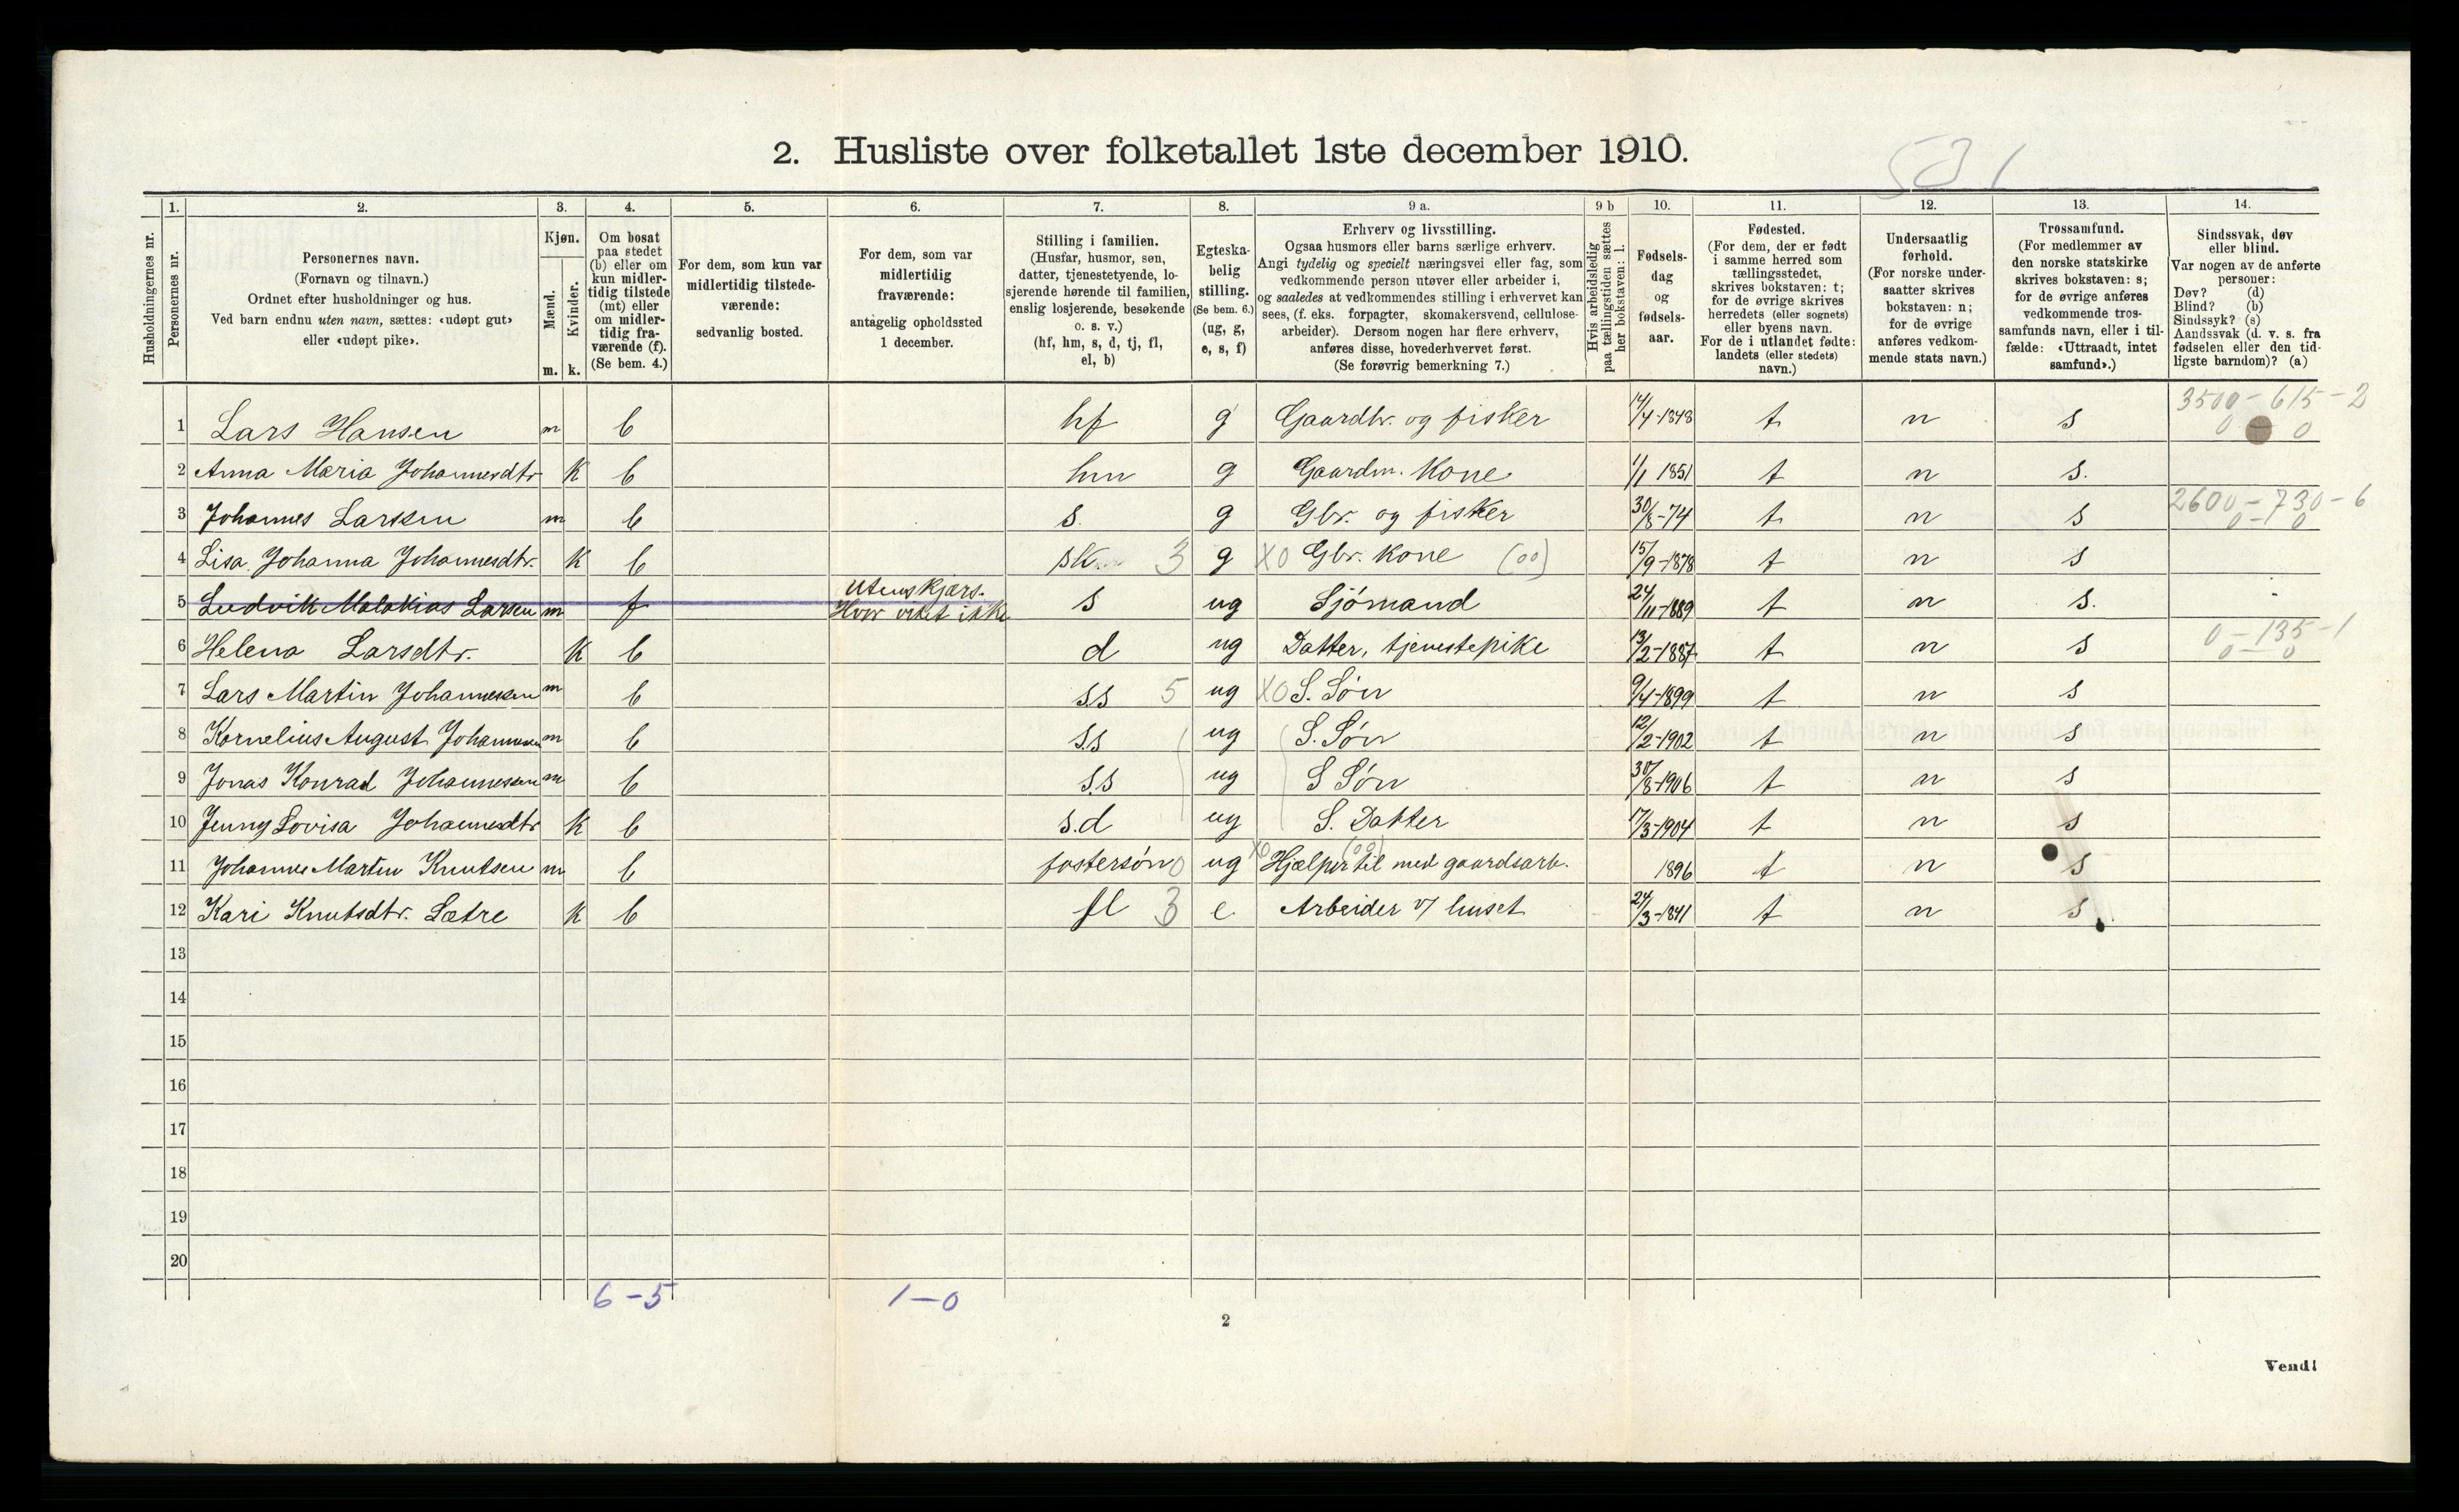 2. Husliste over folketallet 1ste december 1910.
1. 2. 3. 4. 5. 6. 7. 8. 9 a. 9 b 10. 11. 12. 13. 14.
Husholdningernes nr.
Personernes nr.
Personernes navn.
(Fornavn og tilnavn.)
Ordnet efter husholdninger og hus.
Ved barn endnu uten navn, sættes: «udøpt gut»
eller «udøpt pike».
Kjøn.
Mænd.
Kvinder.
m. k.
Om bosat
paa stedet
(b) eller om
kun midler-
tidig tilstede
(mt) eller
om midler-
tidig fra-
værende (f).
(Se bem. 4.)
For dem, som kun var
midlertidig tilstede-
værende:
sedvanlig bosted.
For dem, som var
midlertidig
fraværende:
antagelig opholdssted
1 december.
Stilling i familien.
(Husfar, husmor, søn,
datter, tjenestetyende, lo-
sjerende hørende til familien,
enslig losjerende, besøkende
o. s. v.)
(hf, hm, s, d, tj, fl,
el, b)
Egteska-
belig
stilling.
(Se bem. 6.)
(ug, g,
e, s, f)
Erhverv og livsstilling.
Ogsaa husmors eller barns særlige erhverv.
Angi tydelig og specielt næringsvei eller fag, som
vedkommende person utøver eller arbeider i,
og saaledes at vedkommendes stilling i erhvervet kan
sees, (f. eks. forpagter, skomakersvend, cellulose-
arbeider). Dersom nogen har flere erhverv,
anføres disse, hovederhvervet først.
(Se forøvrig bemerkning 7.)
Hvis arbeidsledig
paa tællingstiden sættes
her bokstaven: l.
Fødsels-
dag
og
fødsels-
aar.
Fødested.
(For dem, der er født
i samme herred som
tællingsstedet,
skrives bokstaven: t;
for de øvrige skrives
herredets (eller sognets)
eller byens navn.
For de i utlandet fødte:
landets (eller stedets)
navn.)
Undersaatlig
forhold.
(For norske under-
saatter skrives
bokstaven: n;
for de øvrige
anføres vedkom-
mende stats navn.)
Trossamfund.
(For medlemmer av
den norske statskirke
skrives bokstaven: s;
for de øvrige anføres
vedkommende tros-
samfunds navn, eller i til-
fælde: «Uttraadt, intet
samfund».)
Sindssvak, døv
eller blind.
Var nogen av de anførte
personer:
Døv? (d)
Blind? (b)
Sindssyk? (s)
Aandssvak (d. v. s. fra
fødselen eller den tid-
ligste barndom)? (a)
1 Lars Hansen m b hf g Gaardbr. og fisker 14/4-1848 t n s 3500-615-2
0 - 0
2 Anna Maria Johannesdtr k b hm g Gaardm. Kone 1/1 1851 t n s.
3 Johannes Larssen m b s. g Gbr. og fisker 30/8-74 t n s 2600-730-6
0-0
4 Lisa Johanna Johannesdtr. k b sk 3 g XO Gbr. kone (00) 15/9-1878 t n s
5 Ludvik Malakias Larsen m f Utenskjærs. Hvor vites ikke s ug Sjómand 24/11-1889 t n s.
6 Helena Larsdtr. k b d ug Datter, tjenestepike 13/2-1887 t n s 0-135-1
0-0
7 Lars Martin Johannessen m b s.s 5 ug XO S. Søn 9/4-1899 t n s
8 Kornelius August Johannessen m b s.s ug S. Søn 12/2-1902 t n s
9 Jonas Konrad Johannessen m b s.s ug S Søn 30/8-1906 t n s
10 Jenny Lovisa Johannesdtr k b s.d ug S. Datter 17/3-1904 t n s
11 Johannes Martin Knutsen m b fostersøn 0 ug XO Hjælper til med gaardsarb. (00) 1896 t n s
12 Kari Knutsdtr. Sætre k b fl 3 e Arbeider v/ huset 24/3-1841 t n s
13
14
15
16
17
18
19
20
6-5 1-0
2
Vend!